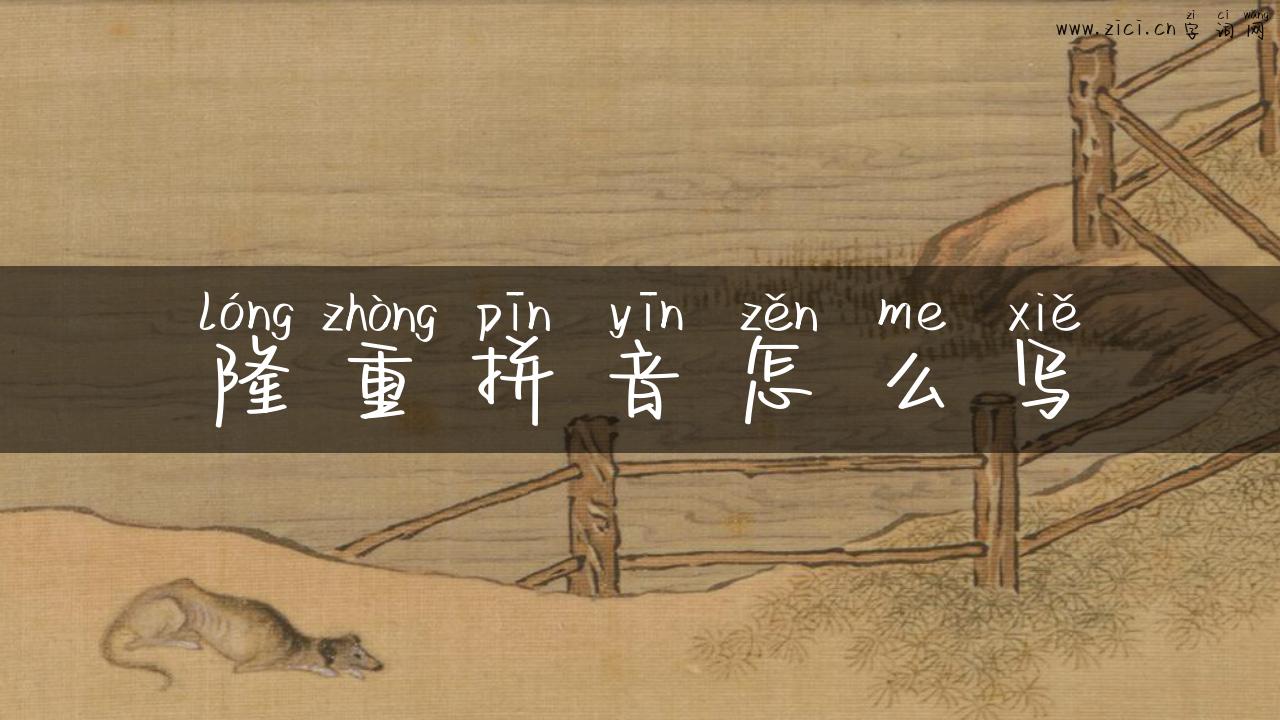 zi ci wang
www.zici.cn 字词网
lóng zhòng pīn yīn zěn me xiě
隆重拼音怎么写